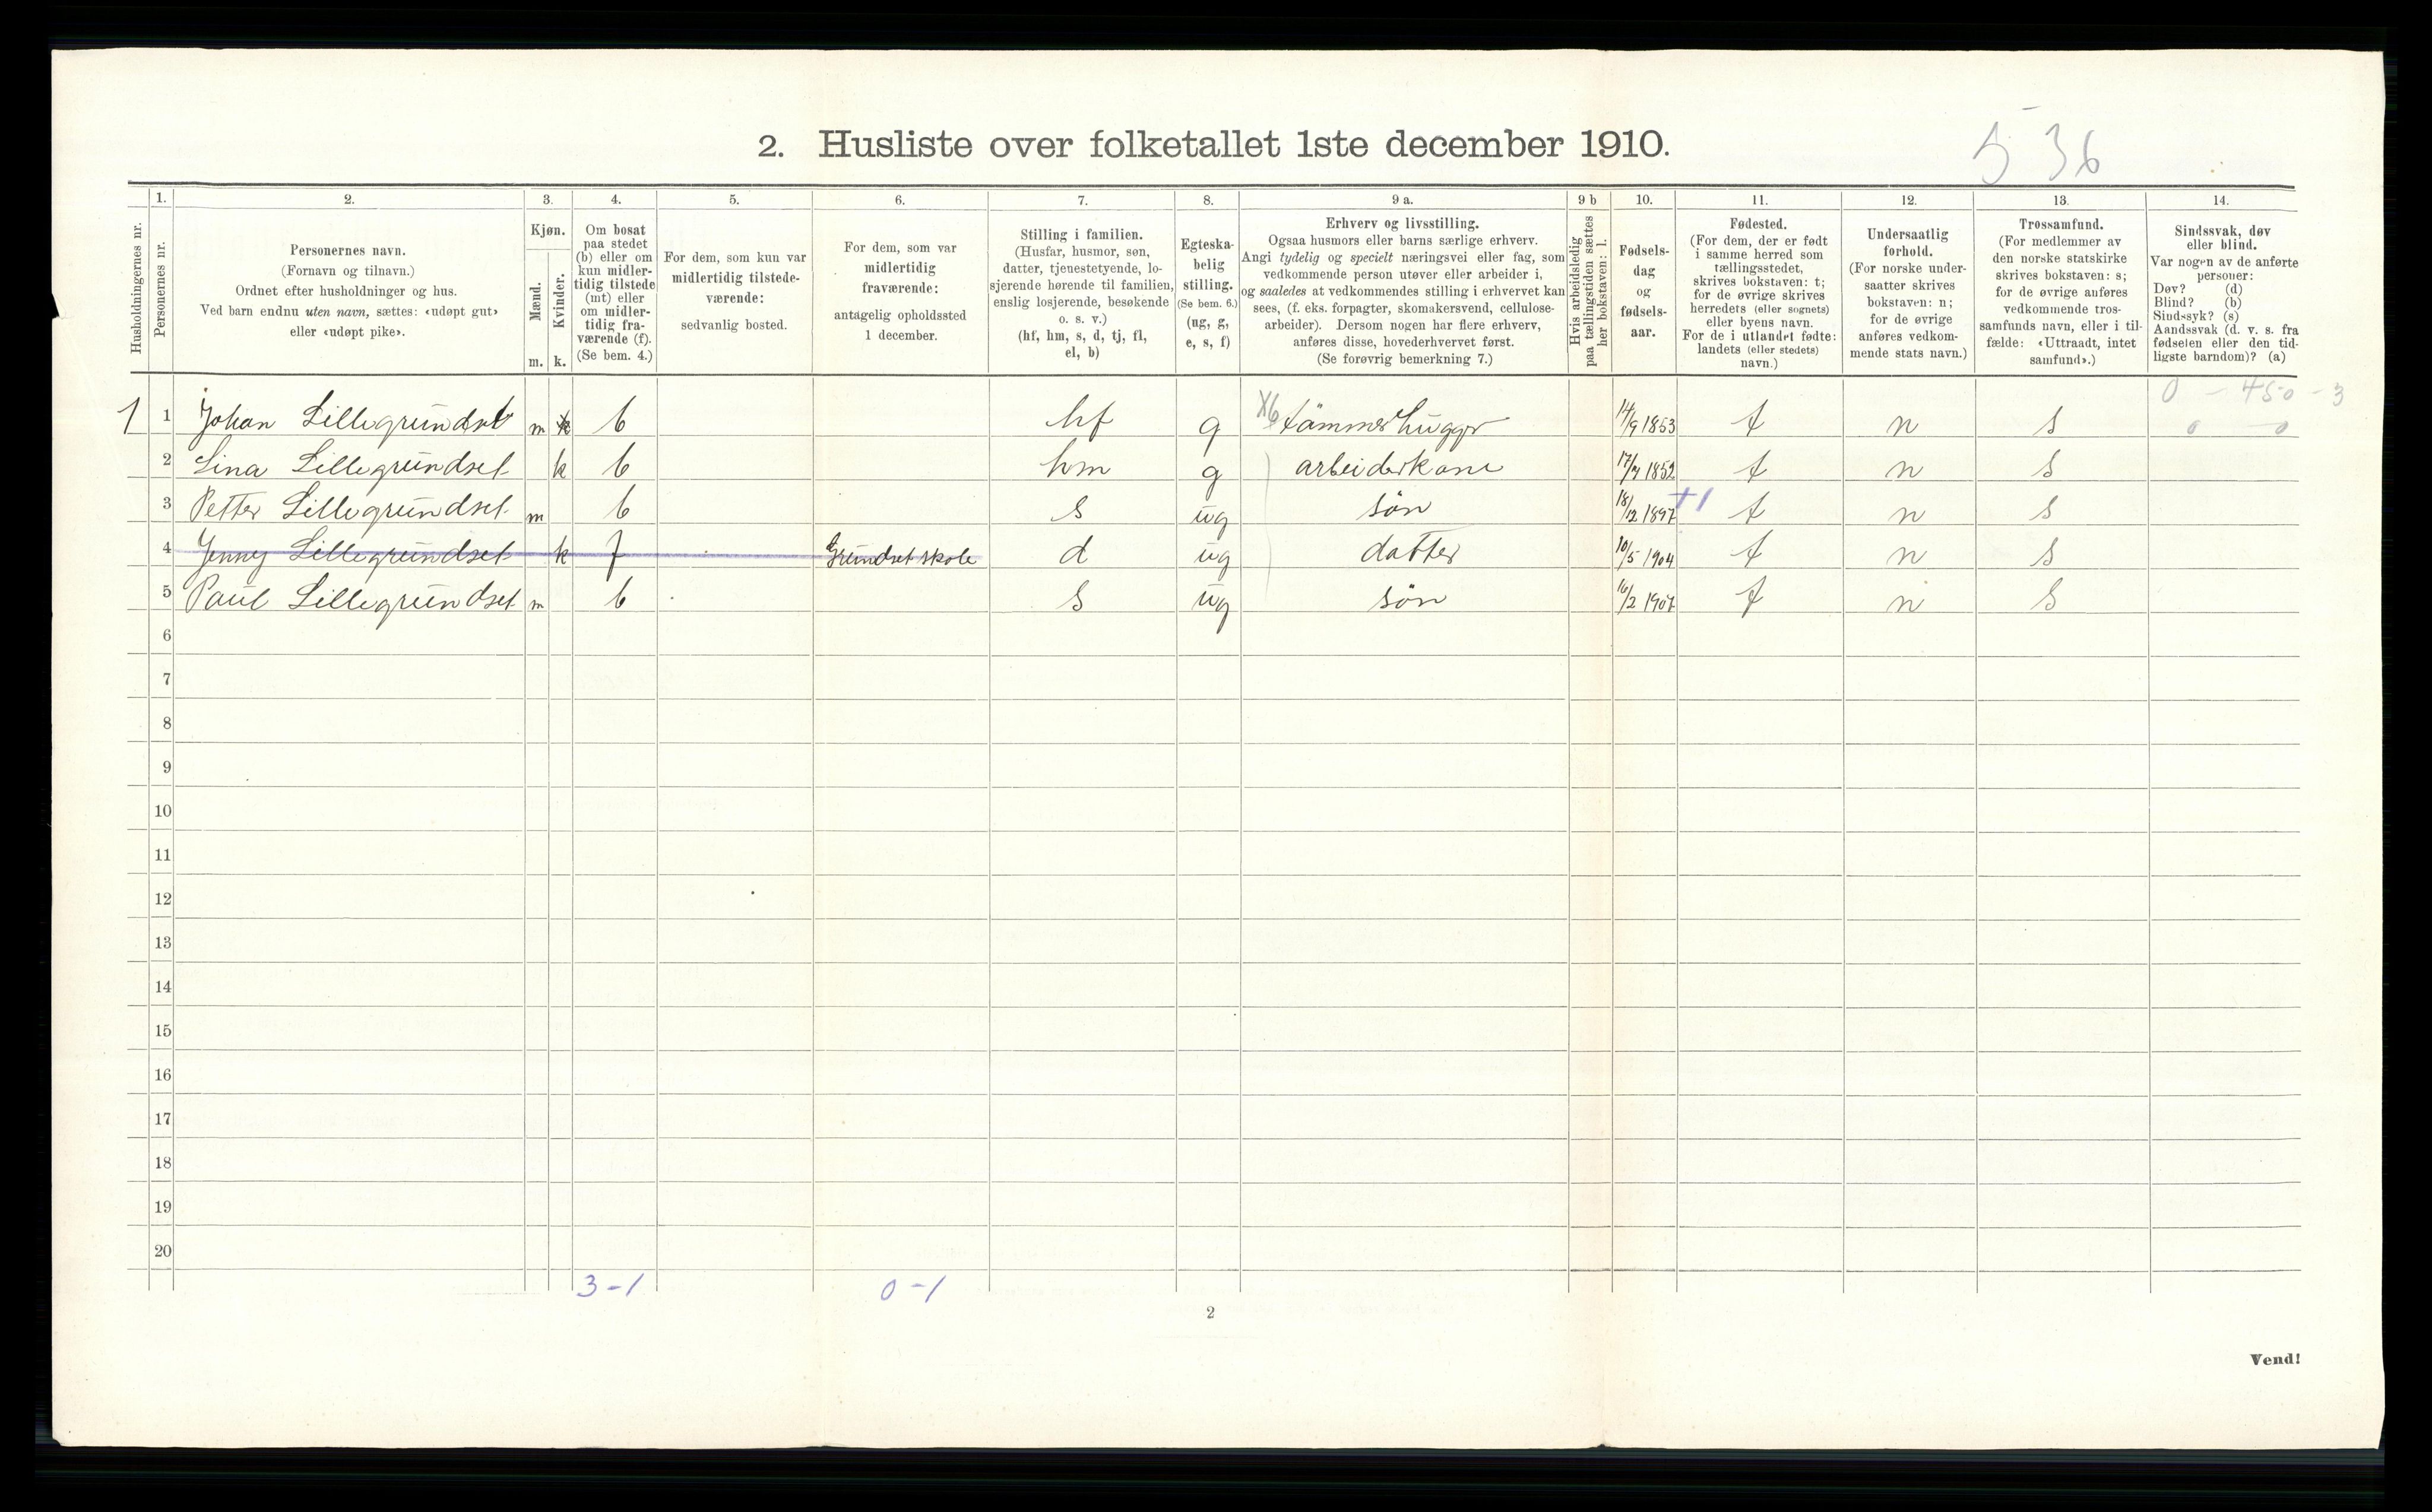 2. Husliste over folketallet 1ste december 1910.
5 36
Husholdningernes nr.
1.
Personernes nr.
2.
Personernes navn.
(Fornavn og tilnavn.)
Ordnet efter husholdninger og hus.
Ved barn endnu uten navn, sættes: «udøpt gut»
eller «udøpt pike».
3.
Kjøn.
Mænd.
Kvinder.
m. k.
4.
Om bosat
paa stedet
(b) eller om
kun midler-
tidig tilstede
(mt) eller
om midler-
tidig fra-
værende (f).
(Se bem. 4.)
5.
For dem, som kun var
midlertidig tilstede-
værende:
sedvanlig bosted.
6.
For dem, som var
midlertidig
fraværende:
antagelig opholdssted
1 december.
7.
Stilling i familien.
(Husfar, husmor, søn,
datter, tjenestetyende, lo-
sjerende hørende til familien,
enslig losjerende, besøkende
o. s. v.)
(hf, hm, s, d, tj, fl,
el, b)
8.
Egteska-
belig
stilling.
(Se bem. 6.)
(ug, g,
e, s, f)
9 a.
Erhverv og livsstilling.
Ogsaa husmors eller barns særlige erhverv.
Angi tydelig og specielt næringsvei eller fag, som
vedkommende person utøver eller arbeider i,
og saaledes at vedkommendes stilling i erhvervet kan
sees, (f. eks. forpagter, skomakersvend, cellulose-
arbeider). Dersom nogen har flere erhverv,
anføres disse, hovederhvervet først.
(Se forøvrig bemerkning 7.)
9 b
Hvis arbeidsledig
paa tællingstiden sættes
her bokstaven: l.
10.
Fødsels-
dag
og
fødsels-
aar.
11.
Fødested.
(For dem, der er født
i samme herred som
tællingsstedet,
skrives bokstaven: t;
for de øvrige skrives
herredets (eller sognets)
eller byens navn.
For de i utlandet fødte:
landets (eller stedets)
navn.)
12.
Undersaatlig
forhold.
(For norske under-
saatter skrives
bokstaven: n;
for de øvrige
anføres vedkom-
mende stats navn.)
13.
Trossamfund.
(For medlemmer av
den norske statskirke
skrives bokstaven: s;
for de øvrige anføres
vedkommende tros-
samfunds navn, eller i til-
fælde: «Uttraadt, intet
samfund».)
14.
Sindssvak, døv
eller blind.
Var nogen av de anførte
personer:
Døv? (d)
Blind? (b)
Sindssyk? (s)
Aandssvak (d. v. s. fra
fødselen eller den tid-
ligste barndom)? (a)
0 - 450 - 3
1 1 Johan Lillegrundset m k b hf g X6 tømmerhugger 14/9 1853 t n s 0 0
2 Lina Lillegrundset k b hm g arbeiderkone 17/7 1852 t n s
3 Petter Lillegrundset m b s ug søn 18/12 1897 +1 t n s
4 Jenny Lillegrundset k f Grundset skole d ug datter 10/5 1904 t n s
5 Paul Lillegrundset m b s ug søn 16/2 1907 t n s
6
7
8
9
10
11
12
13
14
15
16
17
18
19
20
3-1 0-1
2
Vend!